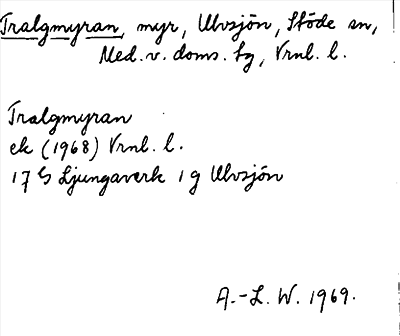 Tralgmyran, myr, Ulvsjön, Stöde sn,
Med. v. doms. tg, Vrnl. l.
Tralgmyran
ek (1968) Vrnl. l.
17 G Ljungaverk 1 g Ulvsjön
A.-L. W. 1969.